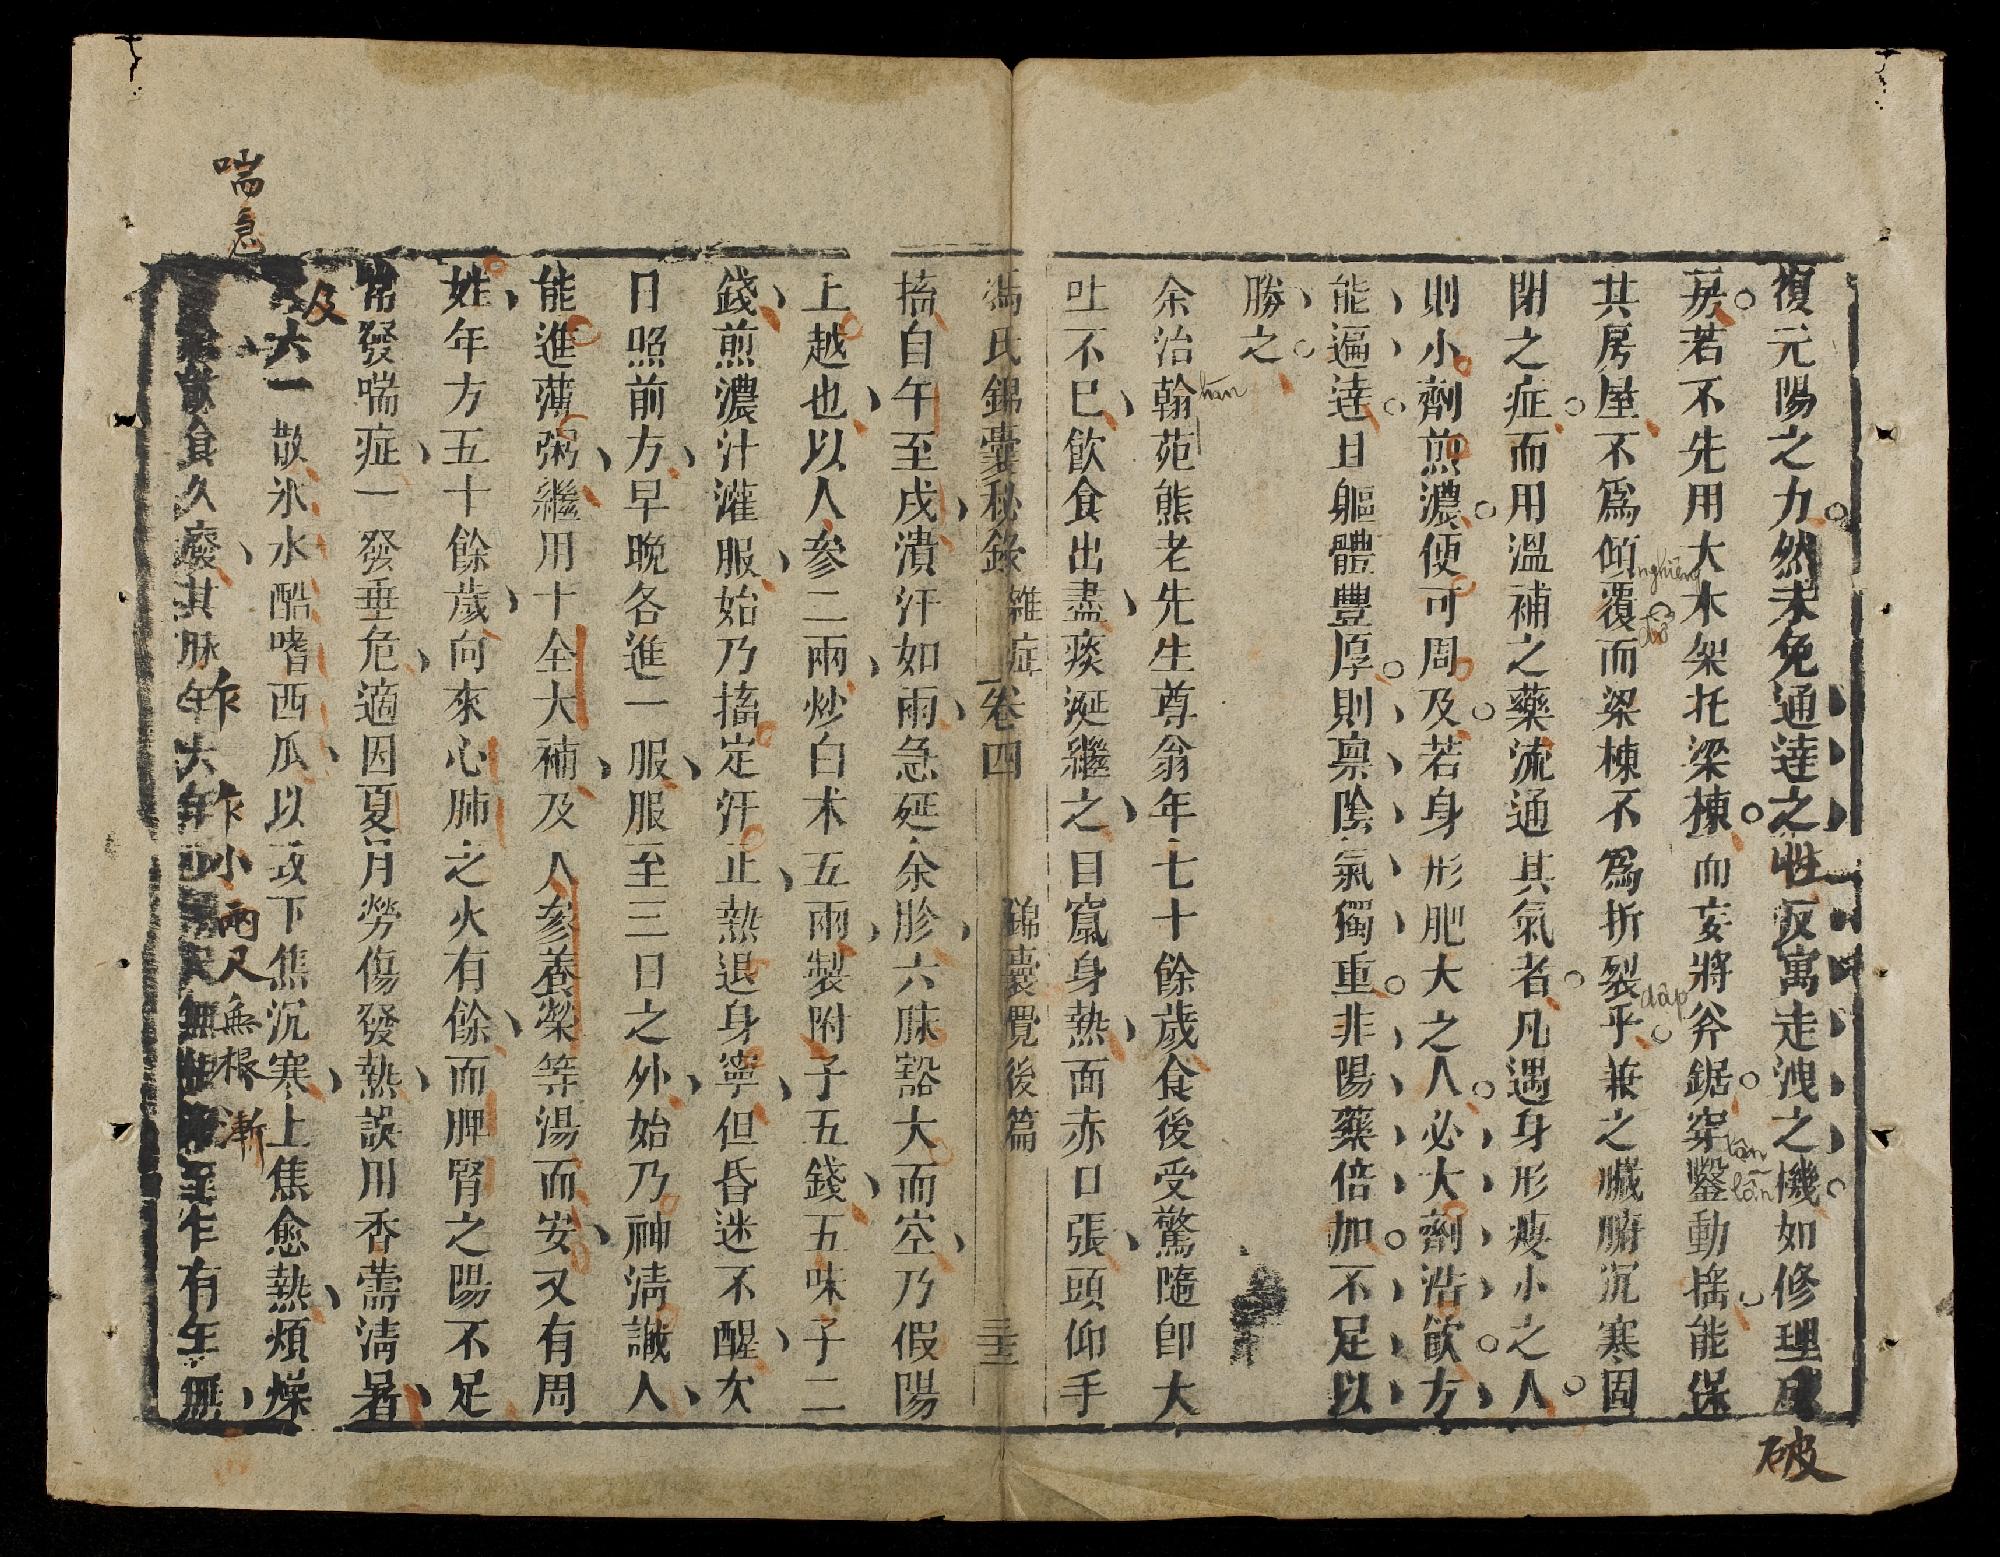 復元陽之力然未免通達之性反寓走洩之機如修理
房若不先用大木架托梁棟而妄將斧鋸穿鑿動搖能保
其房屋不為傾覆而梁棟不為折裂乎兼之臟腑沉寒固
閉之症而用溫補之藥流通其氣者凡遇身形瘦小之人
則小劑煎濃便可周及若身形肥大之人必大劑浩飲方
能逼達且軀體豐厚則禀陰氣獨重非陽藥倍加不足以
勝之
余治翰苑熊老先生尊翁年七十餘歲食後受驚隨即大
吐不已飲食出盡痰涎繼之目竄身熱面赤口張頭仰手
馮氏錦囊秘錄 雜症 卷四 錦囊覺後篇 三十三
搐自午至戌潰汗如雨急延余胗六脉豁大而空乃假陽
上越也以人參二兩炒白术五兩製附子五錢五味子二
錢煎濃汁灌服始乃搐定汗止熱退身寧但昏迷不醒次
日照前方早晚各進一服服至三日之外始乃神淸識人
能進薄粥繼用十全大補及人參養榮等湯而安又有周
姓年方五十餘歲向來心肺之火有餘而脾腎之陽不足
常發喘症一發垂危適因夏月勞傷發熱誤用香薷淸暑
六一散氷水酷嗜西瓜以致下焦沉寒上焦愈熱煩燥
食久廢其脉乍大乍無至乍有乍無
喘急
及
乍
乍小兩尺無根漸
破
hàn
nghiêng
đổ
dập
lần lần